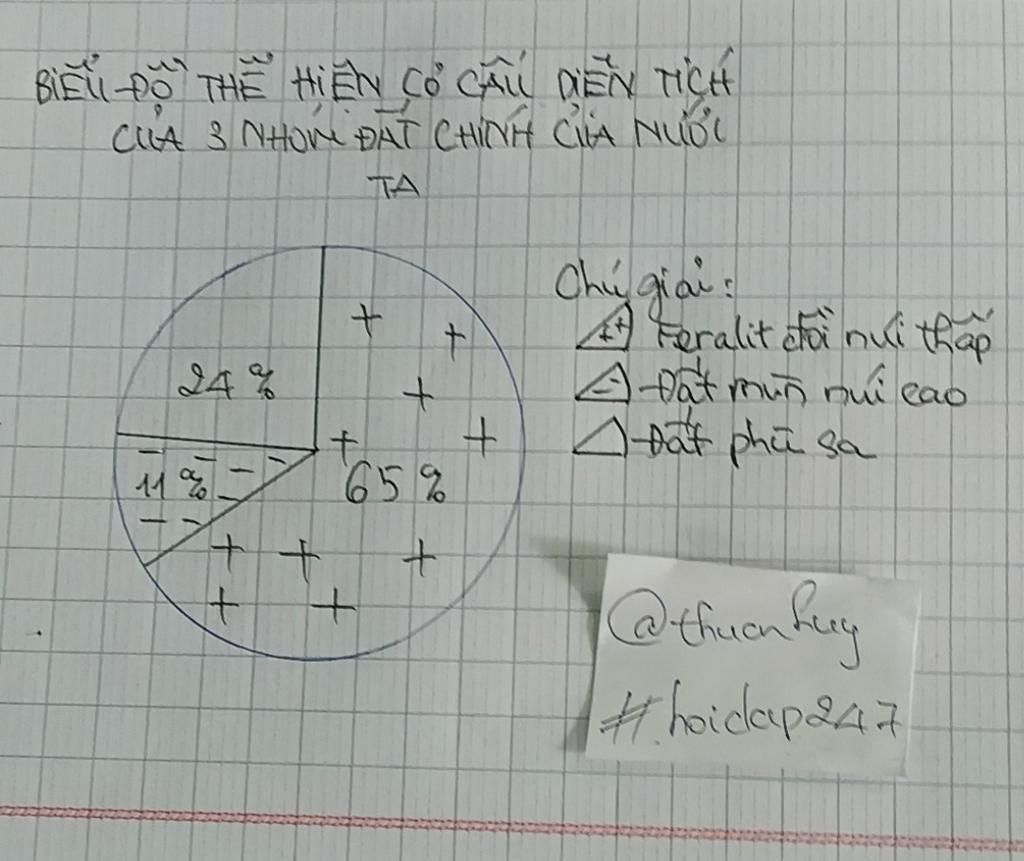 BIỂU ĐỒ THỂ HIỆN CƠ CẤU DIỆN TÍCH
CỦA 3 NHÓM ĐẤT CHÍNH CỦA NƯỚC
TA
24 %
11 %
65 %
Chú giải:
++ Feralit đồi núi thấp
- Đất mùn núi cao
Đất phù sa
@thuanhuy
#hoidap247